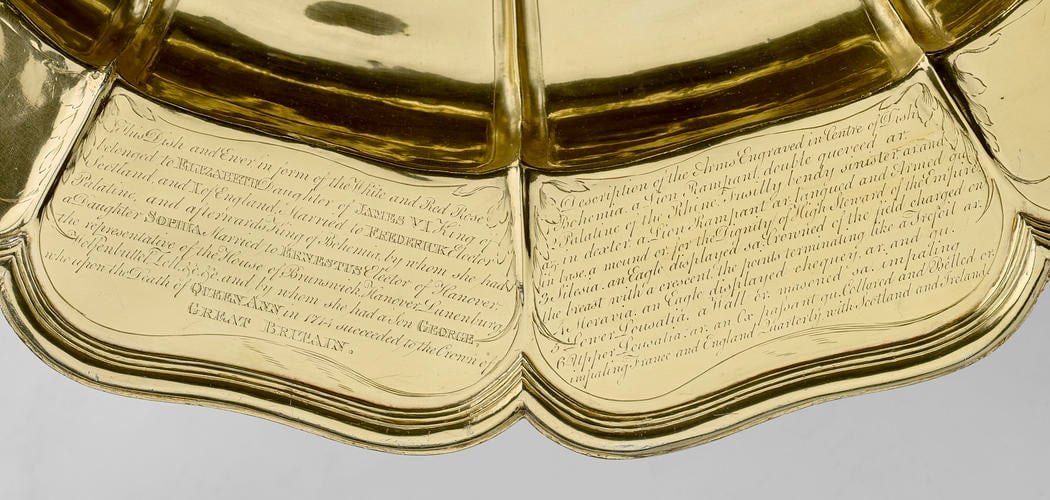 This Dish and Ewer in form of the White and Red Rose
belonged to ELIZABETH Daughter of JAMES VI King of
Scotland, and I of England: Married to FREDERICK Elector
Palatine, and afterwards King of Bohemia, by whom she had
a Daughter SOPHIA, Married to ERNESTUS Elector of Hanover
the representative of the House of Brunswick, Hanover, Lunenburg,
Wolfenbuttel, Zell, &c. &c. and by whom she had a Son GEORGE,
who upon the Death of QUEEN ANN in 1714 succeeded to the Crown of
GREAT BRITAIN.
Description of the Arms Engraved in Centre of Dish
Bohemia, a Lion Rampant, double queveed ar.
2 Palatine of the Rhine, Fusilly bendy sinister, ar. and
az. in dexter, a Lion Rampant ar. langued and Armed gu.
in base, a mound or. for the Dignity of High Steward of the Empire
3 Silesia, an Eagle displayed sa. Crowned of the field charged on
the breast with a crescent, the points terminating like a Trefoil ar.
4 Moravia, an Eagle displayed chequey, ar. and gu.
5 Lower Lousalia, a Wall or. masoned sa. impaling
6 Upper Lousatia, ar. an Ox passant gu. Collared and Belled or.
impaling France and England Quarterly, with Scotland and Ireland.